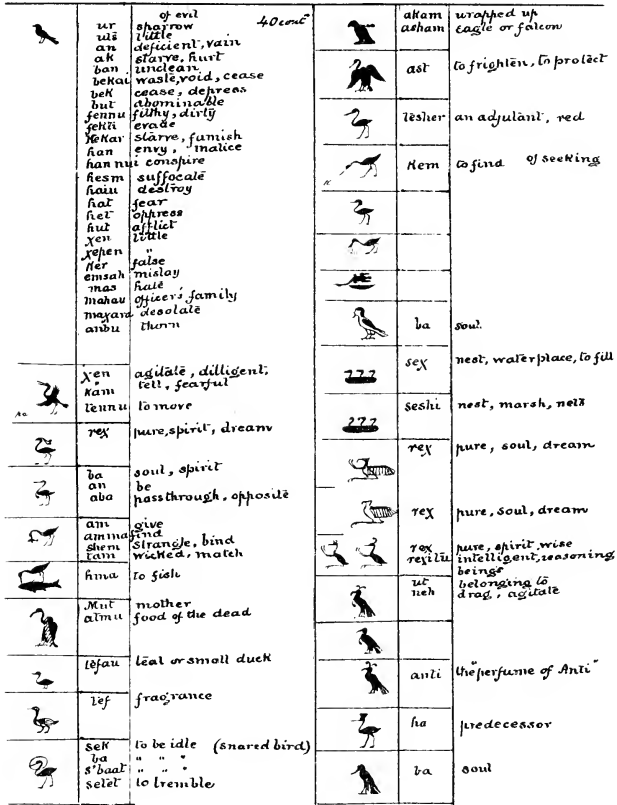 of evil 40 cont
ur sparrow
uls little
an deficient, vain
ak starve, hurt
ban unclean
bekai waste, void, cease
bek cease, depress
but abominable
fennu filthy, dirty
fekti evade
Hekar starve, famish
han envy, malice
han nui conspire
hesm suffocate
haiu destroy
hat fear
het oppress
hut afflict
xen little
xepen "
Ker false
emsah mislay
mas hate
mahau officer's family
maxara desolate
anbu thorn
xen agitate, dilligent,
Kam tell, fearful
tennu to move
rex pure, spirit, dream
ba soul, spirit
an be
aba pass through, opposite
am give
amma find
shem strangle, bind
tam wicked, match
hma to fish
Mut mother
atmu food of the dead
tefau teal or small duck
tef fragrance
sek to be idle (snared bird)
ba " " "
s'baat " " "
setet to tremble
akam wrapped up
asham eagle or falcon
ast to frighten, to protect
tesher an adjutant, red
Kem to find of seeking
ba soul.
sex nest, waterplace, to fill
seshi nest, marsh, nets
rex pure, soul, dream
rex pure, soul, dream
rex pure, spirit, wise
rexitu intelligent, reasoning
beings
ut belonging to
neh drag, agitate
anti the "perfume of Anti"
ha predecessor
ba soul